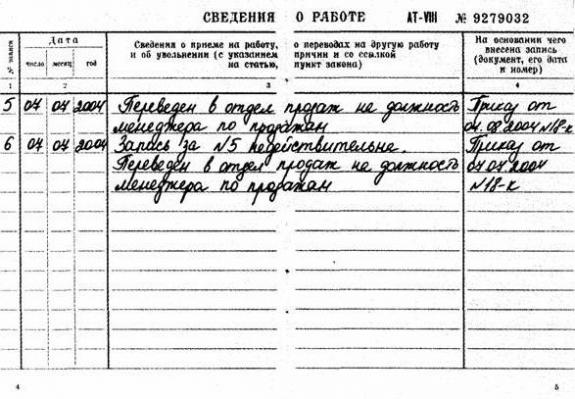 СВЕДЕНИЯ О РАБОТЕ АТ-VIII № 9279032
№ записи
Дата
число месяц год
Сведения о приеме на работу, о переводах на другую работу
и об увольнении (с указанием причин и со ссылкой
на статью, пункт закона)
На основании чего
внесена запись
(документ, его дата
и номер)
1 2 3 4
5 07 07 2004 Переведен в отдел продаж на должность Приказ от
менеджера по продажам 04.08 2004 №18-к
6 07 07 2004 Запись за №5 недействительна. Приказ от
Переведен в отдел продаж на должность 07 07 2004
менеджера по продажам №18-к
4 5